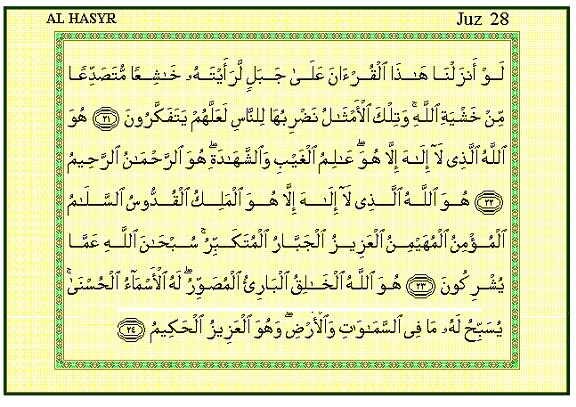 AL HASYR
Juz 28
لَوْ أَنزَلْنَا هَـٰذَا ٱلْقُرْءَانَ عَلَىٰ جَبَلٍ لَّرَأَيْتَهُۥ خَـٰشِعًا مُّتَصَدِّعًا
مِّنْ خَشْيَةِ ٱللَّهِ ۚ وَتِلْكَ ٱلْأَمْثَـٰلُ نَضْرِبُهَا لِلنَّاسِ لَعَلَّهُمْ يَتَفَكَّرُونَ ٢١ هُوَ
ٱللَّهُ ٱلَّذِى لَآ إِلَـٰهَ إِلَّا هُوَ ۖ عَـٰلِمُ ٱلْغَيْبِ وَٱلشَّهَـٰدَةِ ۖ هُوَ ٱلرَّحْمَـٰنُ ٱلرَّحِيمُ
٢٢ هُوَ ٱللَّهُ ٱلَّذِى لَآ إِلَـٰهَ إِلَّا هُوَ ٱلْمَلِكُ ٱلْقُدُّوسُ ٱلسَّلَـٰمُ
ٱلْمُؤْمِنُ ٱلْمُهَيْمِنُ ٱلْعَزِيزُ ٱلْجَبَّارُ ٱلْمُتَكَبِّرُ ۚ سُبْحَـٰنَ ٱللَّهِ عَمَّا
يُشْرِكُونَ ٢٣ هُوَ ٱللَّهُ ٱلْخَـٰلِقُ ٱلْبَارِئُ ٱلْمُصَوِّرُ ۖ لَهُ ٱلْأَسْمَآءُ ٱلْحُسْنَىٰ ۚ
يُسَبِّحُ لَهُۥ مَا فِى ٱلسَّمَـٰوَٰتِ وَٱلْأَرْضِ ۖ وَهُوَ ٱلْعَزِيزُ ٱلْحَكِيمُ ٢٤